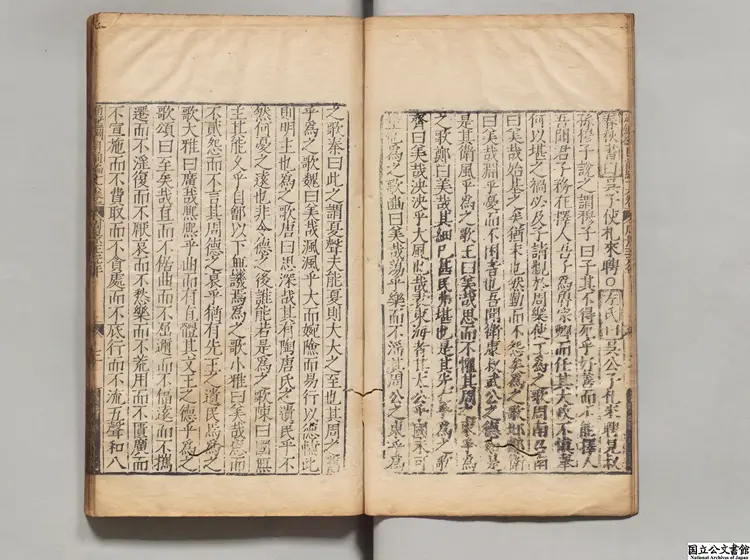 春秋書曰吳子使札來聘○左氏曰吳公子札來聘見叔
孫穆子說之謂穆子曰子其不得死乎好善而不能擇人
吾聞君子務在擇人吾子爲魯宗卿而任其大政不愼舉
何以堪之禍必及子請觀於周樂使工爲之歌周南召南
曰美哉始基之矣猶未也然勤而不怨矣爲之歌邶鄘衛
曰美哉淵乎憂而不困者也吾聞衛康叔武公之德如是
是其衛風乎爲之歌王曰美哉思而不懼其周之東乎爲
之歌鄭曰美哉其細已甚民弗堪也是其先亡乎爲之歌
齊曰美哉泱泱乎大風也哉表東海者其太公乎國未可
量也爲之歌豳曰美哉蕩乎樂而不淫其周公之東乎爲
之歌秦曰此之謂夏聲夫能夏則大大之至也其周之舊
乎爲之歌魏曰美哉渢渢乎大而婉險而易行以德輔此
則明主也爲之歌唐曰思深哉其有陶唐氏之遺民乎不
然何憂之遠也非令德之後誰能若是爲之歌陳曰國無
主其能久乎自鄶以下無譏焉爲之歌小雅曰美哉思而
不貳怨而不言其周德之衰乎猶有先王之遺民焉爲之
歌大雅曰廣哉熙熙乎曲而有直體其文王之德乎爲之
歌頌曰至矣哉直而不倨曲而不屈邇而不偪遠而不攜
遷而不淫復而不厭哀而不愁樂而不荒用而不匱廣而
不宣施而不費取而不貪處而不底行而不流五聲和八
国立公文書館
National Archives of Japan